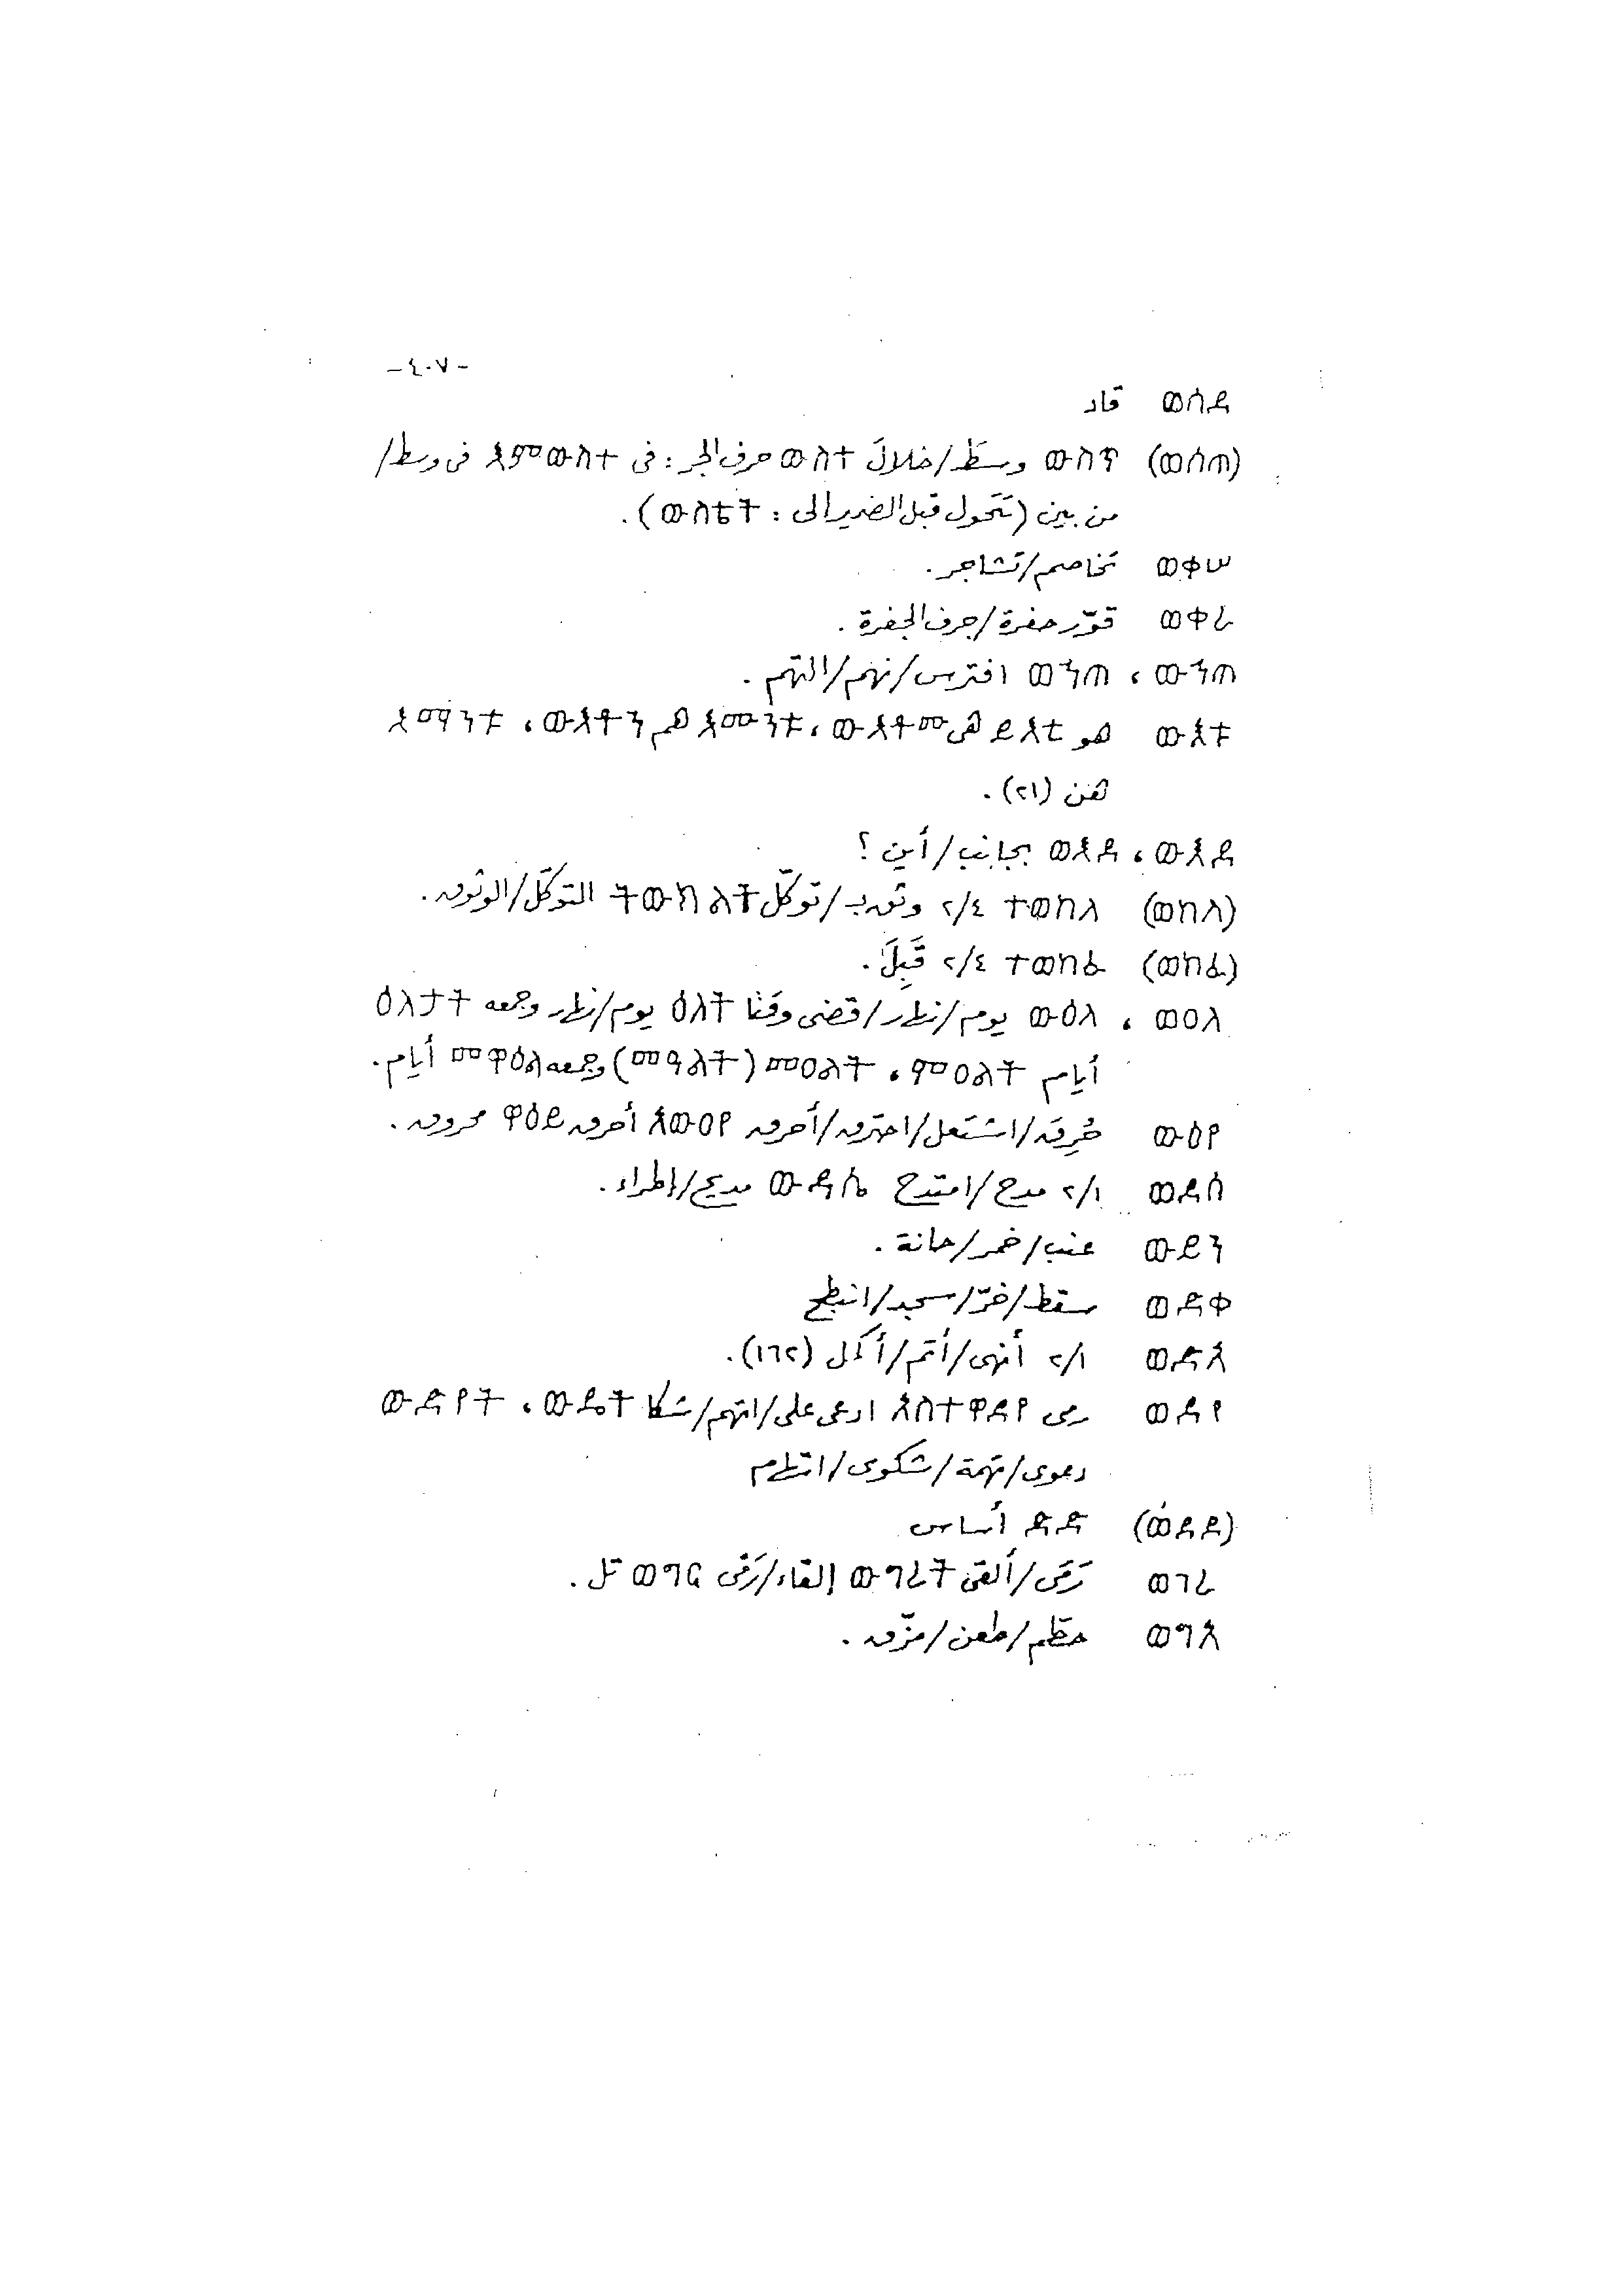 - ٤٠٧ -
ወሰደ قاد
(ወሰጠ) ውስጥ وسطَ/خلالَ ውስተ حرف الجر : في እምውስተ في وسط/
من بين (تتحول قبل الضمير الى : ውስቴት).
ወቀሠ تخاصم/تشاجر.
ወቀረ قوّر حفرة/جرف الحفرة.
ውኅጠ ، ወኀጠ افترس/نهم/التهم.
ውእቱ هو ይእቲ هي ውእቶሙ ، እሙንቱ هم ውእቶን ، እማንቱ
هن (٢١).
ውእደ ، ወእደ بجانب/أين ؟
(ወከለ) ተወከለ ٢/٤ وثق بـ/توكّل ትውክልት التوكّل/الوثوق.
(ወከፈ) ተወከፈ ٢/٤ قَبِلَ.
ወዐለ ، ውዕለ يوم/نهار/قضى وقتا ዕለት يوم/نهار وجمعه ዕለታት
أيام መዓልት ، መዐልት (መዋልት) وجمعه መዋዕል أيام.
ውዕየ حُرِقَ/اشتعل/احترق/أحرق አውዐየ أحرق ዋዕይ محروق.
ወደሰ ٢/١ مدح/امتدح ውዳሴ مديح/إطراء.
ወይን عنب/خمر/حانة.
ወድቀ سقط/خرّ/سجد/انبطح
ወድአ ٢/١ أنهى/أتم/أكمل (١٦٢).
ወደየ رمى አስተዋደየ ادعى على/اتهم/شكا ውዴት ، ውድየት
دعوى/تهمة/شكوى/اتظلم
(ወደደ) ድድ أساس
ወገረ رَمَى/ألقى ውግረት إلقاء/رَمْى ወግር تل.
ወግአ حطّم/طعن/مزّق.